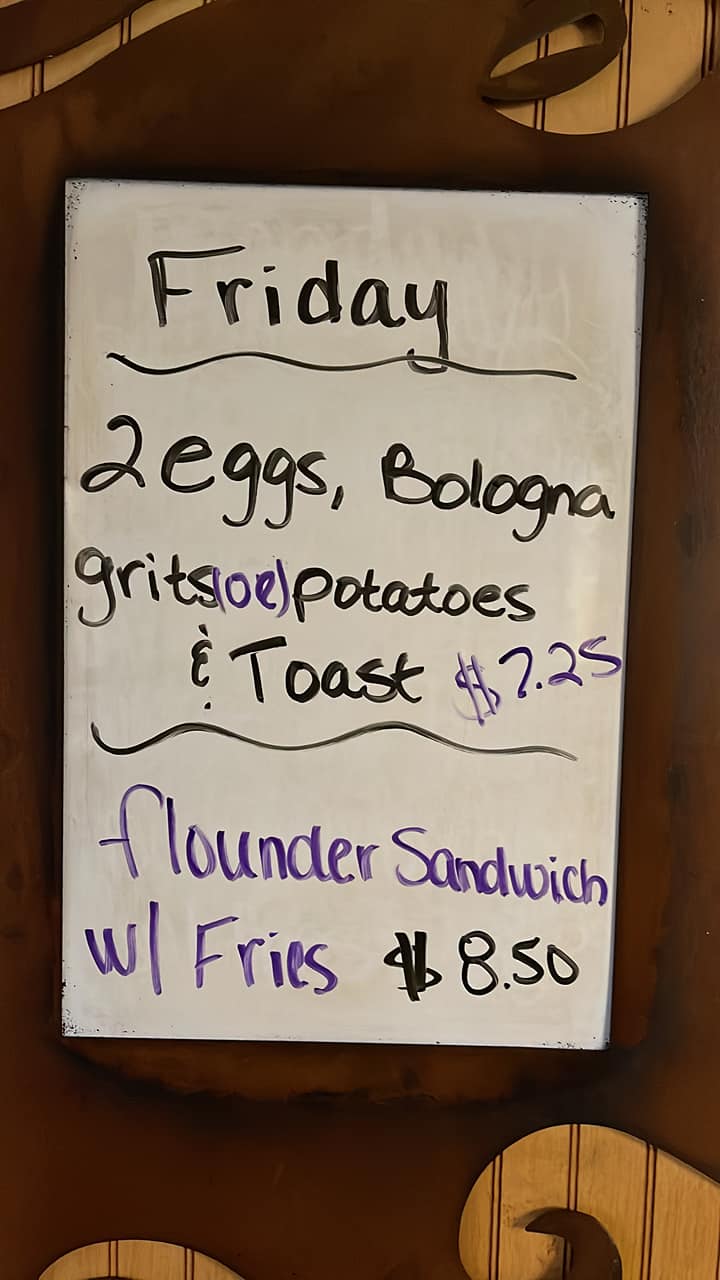 Friday
2 eggs, Bologna
grits(or)potatoes
& Toast $7.25
flounder Sandwich
w/ Fries $8.50